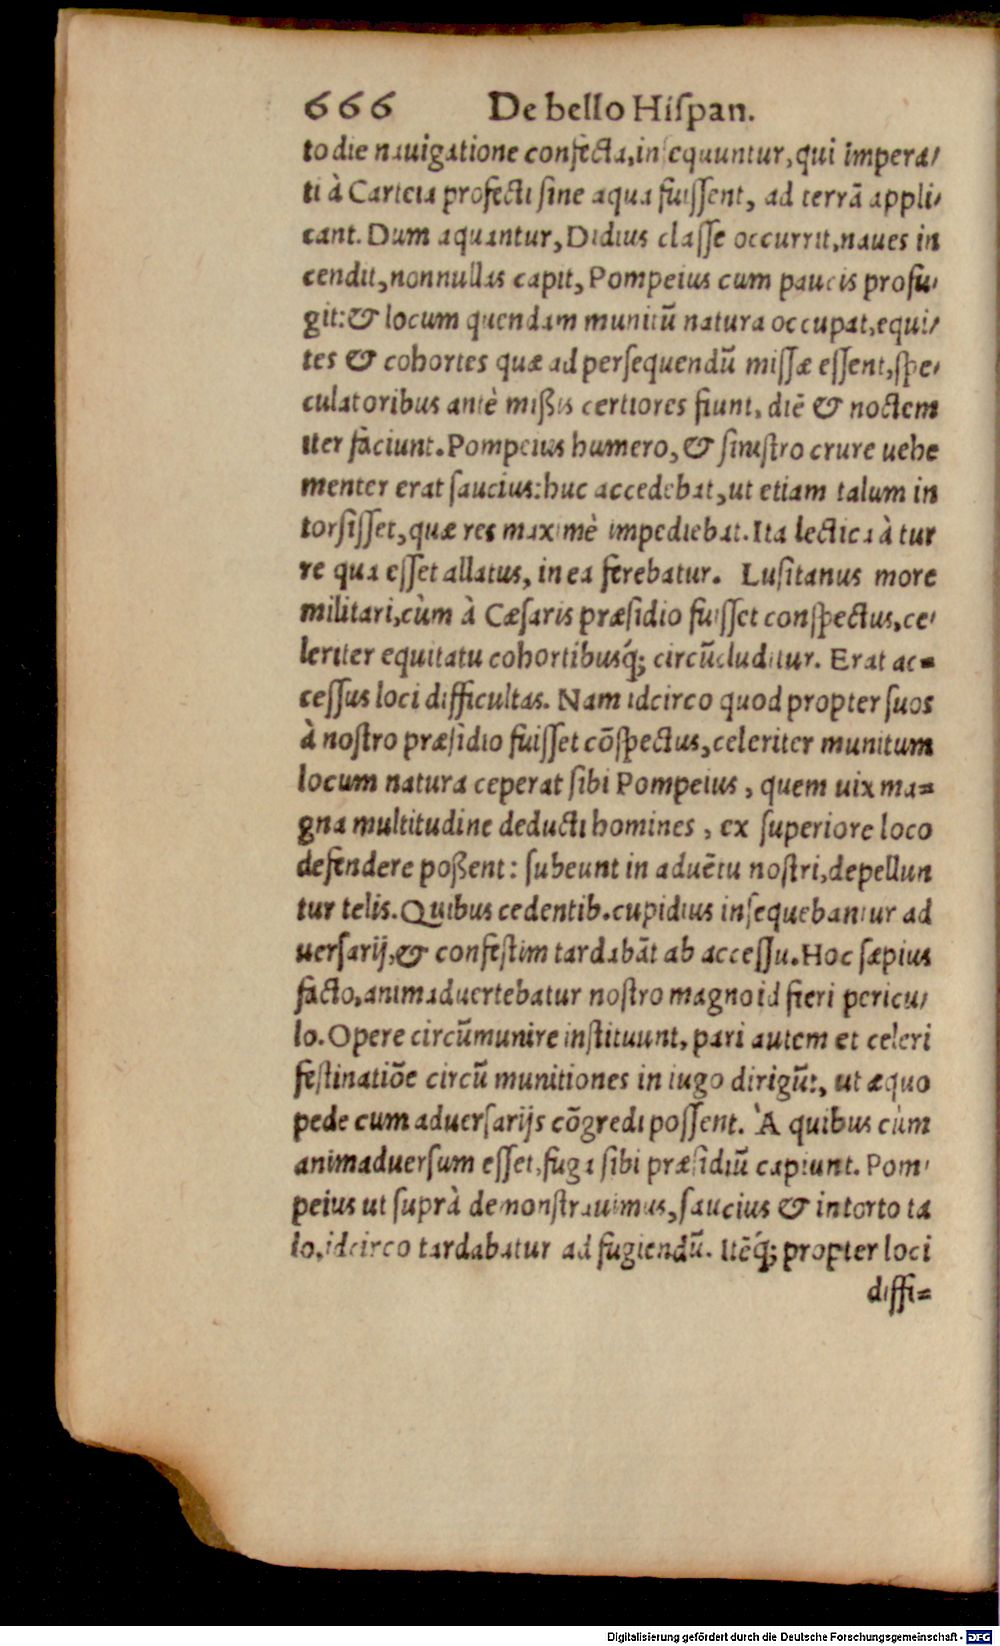 666 De bello Hiſpan.
to die nauigatione confecta, inſequuntur, qui impera/
ti à Carteia profecti ſine aqua fuiſſent, ad terrā appli/
cant. Dum aquantur, Didius claſſe occurrit, naues in
cendit, nonnullas capit, Pompeius cum paucis profu/
git: & locum quendam munitū natura occupat, equi/
tes & cohortes quæ ad perſequendū miſſæ eſſent, ſpe/
culatoribus antè mißis certiores fiunt, diē & noctem
iter faciunt. Pompeius humero, & ſiniſtro crure uehe
menter erat ſaucius: huc accedebat, ut etiam talum in
torſiſſet, quæ res maximè impediebat. Ita lectica à tur
re qua eſſet allatus, in ea ferebatur. Luſitanus more
militari, cùm à Cæſaris præſidio fuiſſet conſpectus, ce/
leriter equitatu cohortibusq́; circūcluditur. Erat ac=
ceſſus loci difficultas. Nam idcirco quod propter ſuos
à noſtro præſidio fuiſſet cōſpectus, celeriter munitum
locum natura ceperat ſibi Pompeius, quem uix ma=
gna multitudine deducti homines, ex ſuperiore loco
defendere poßent: ſubeunt in aduētu noſtri, depellun
tur telis. Quibus cedentib. cupidius inſequebantur ad
uerſarij, & confeſtim tardabāt ab acceſſu. Hoc ſæpius
facto, animaduertebatur noſtro magno id fieri pericu/
lo. Opere circūmunire inſtituunt, pari autem et celeri
feſtinatiōe circū munitiones in iugo dirigūt, ut æquo
pede cum aduerſarijs cōgredi poſſent. À quibus cùm
animaduerſum eſſet, fuga ſibi præſidiū capiunt. Pom/
peius ut ſuprà demonſtrauimus, ſaucius & intorto ta
lo, idcirco tardabatur ad fugiendū. Itēq́; propter loci
diffi=
Digitalisierung gefördert durch die Deutsche Forschungsgemeinschaft - DFG